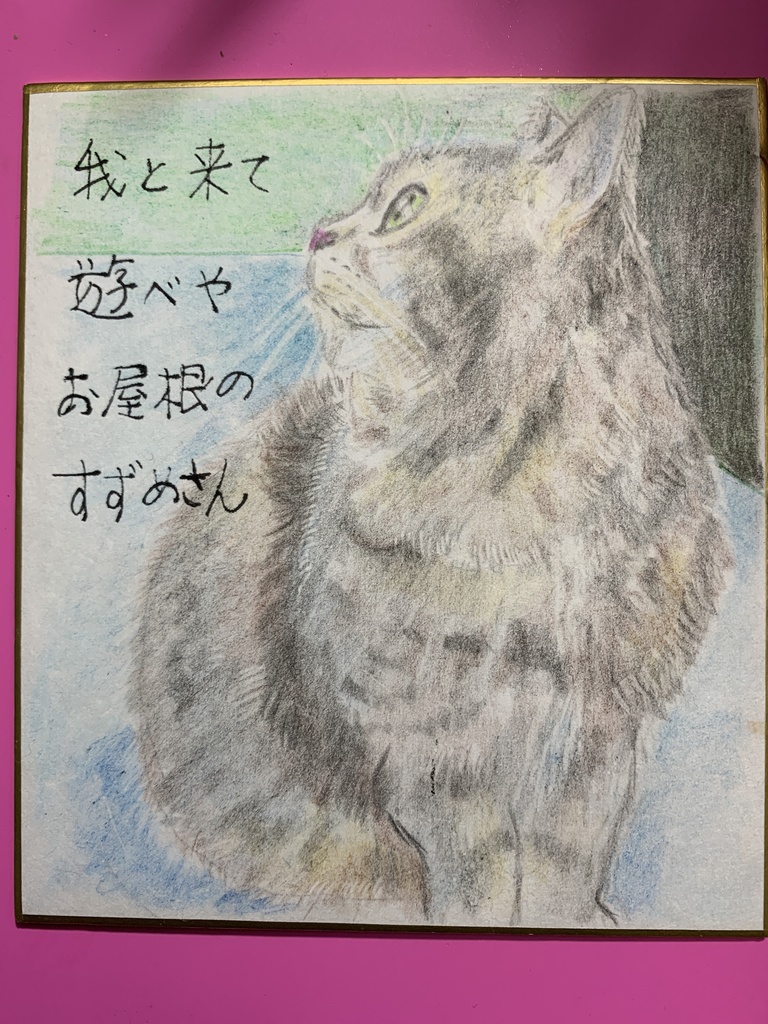 我と来て
遊べや
お屋根の
すずめさん